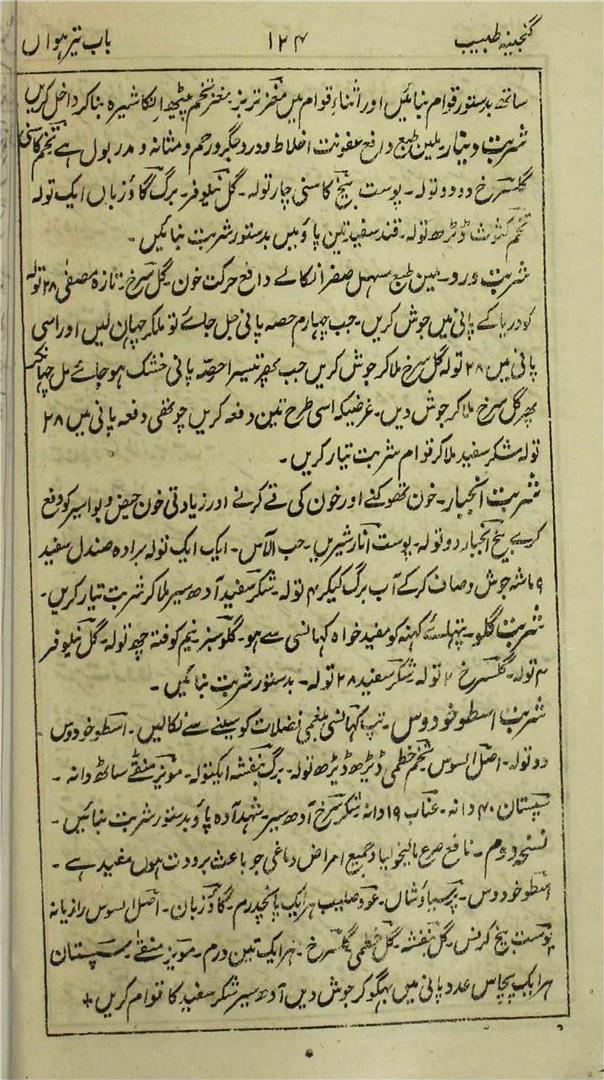 گنجینہ طبیب ۱۲۴ باب تیرہواں
ساتھ بدستور قوام بنائیں اور اثناء قوام میں مغز تربز مغز تخم پیٹھ انکا شیرہ بنا کر داخل کریں
شربت دینار۔ ملین طبع دافع عفونت اخلاط و درد جگر و رحم و مثانہ و مدر بول ہے تخم کاسنی
گلسرخ دو دو تولہ۔ پوست بیخ کاسنی چار تولہ۔ گل نیلوفر۔ برگ گاؤزباں ایک تولہ
تخم کثوث ڈڑھ تولہ۔ قند سفید تین پاؤ میں بدستور شربت بنائیں۔
شربت ورد۔ ملین طبع مسہل صفرا نکالے دافع حرکت خون۔ گل سرخ۔ تازہ مصفٰی ۲۸ تولہ
کو دریا کے پانی میں جوش کریں۔ جب چہارم حصہ پانی جل جائے تو ملکر چہان لیں اور اسی
پانی میں ۲۸ تولہ گل سرخ ملا کر جوش کریں جب پھر تیسرا حصہ پانی خشک ہو جائے مل چہانکر
پھر گل سرخ ملا کر جوش دیں۔ غرضیکہ اسی طرح تین دفعہ کریں چوتھی دفعہ پانی میں ۲۸
تولہ شکر سفید ملا کر قوام شربت تیار کریں۔
شربت انجبار۔ خون تھوکنے اور خون کی قے کرنے اور زیادتی خون حیض و بواسیر کو دفع
کرے بیخ انجبار دو تولہ۔ پوست انار شیریں۔ حب الآس۔ ایک ایک تولہ برادہ صندل سفید
۹ ماشہ جوش و صاف کر کے آب برگ کیکر ۴ تولہ۔ شکر سفید آدھ سیر ملا کر شربت تیار کریں۔
شربت گلو۔ کہنہ کو مفید خواہ کہانسی سے ہو۔ گلو سبز نیم کوفتہ چھ تولہ۔ گل نیلوفر
۳ تولہ۔ گلسرخ ۲ تولہ شکر سفید ۲۸ تولہ۔ بدستور شربت بنائیں۔
شربت اسطوخودوس۔ تپ کہانسی بلغمی فضلات کو سینے سے نکالیں۔ اسطوخودوس
دو تولہ۔ اصل السوس تخم خطمی ڈیڑھ ڈیڑھ تولہ۔ برگ بنفشہ ایکتولہ۔ مویز منقے ساٹھ دانہ۔
سپستان ۴۰ دانہ۔ عناب ۱۹ دانہ شکر سرخ آدھ سیر۔ شہد آدہ پاؤ بدستور شربت بنائیں۔
نسخہ دوم۔ نافع صرع مالیخولیا و جمیع امراض دماغی جو باعث برودت ہوں مفید ہے۔
اسطوخودوس۔ پرسیاؤشاں۔ عود صلیب ہر ایک پانچدرم۔ گاؤزبان۔ اصل السوس رازیانہ
پوست بیخ کرفس۔ گل بنفشہ۔ گل خطمی گلسرخ۔ ہر ایک تین درم۔ مویز منقے۔ سپستان
ہر ایک پچاس عدد پانی میں بہگو کر جوش دیں آدھ سیر شکر سفید کا قوام کریں +